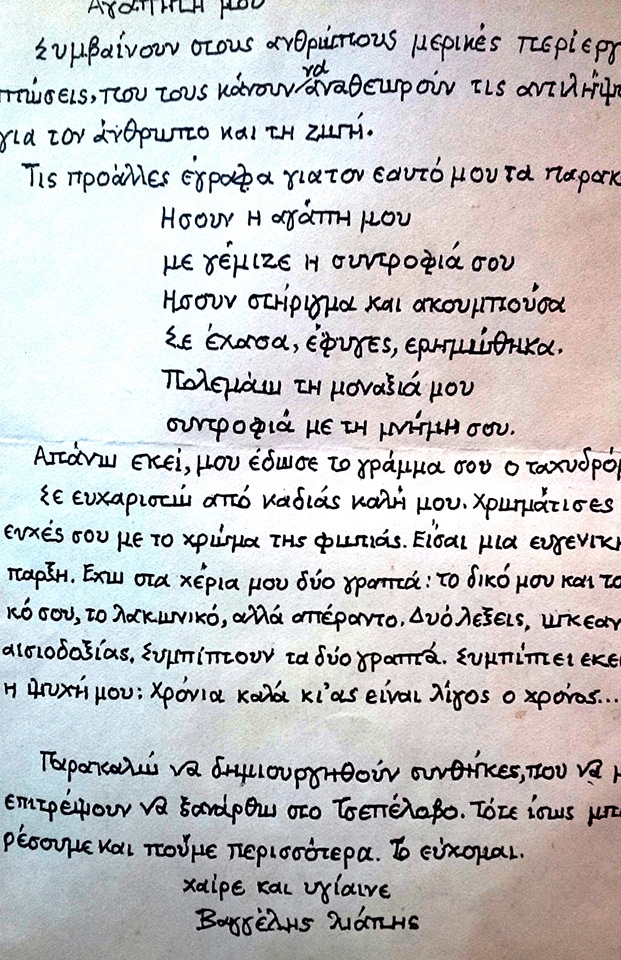 Αγάπητή μου
Συμβαίνουν στους ανθρώπους μερικές περίεργ
πτώσεις, που τους κάνουν να αναθεωρούν τις αντιλήψ
για τον άνθρωπο και τη ζωή.
Τις προάλλες έγραφα για τον εαυτό μου τα παρακ
Ησουν η αγάπη μου
με γέμιζε η συντροφιά σου
Ησουν στήριγμα και ακουμπούσα
Σε έχασα, έφυγες, ερημώθηκα.
Πολεμάω τη μοναξιά μου
συντροφιά με τη μνήμη σου.
Απάνω εκεί, μου έδωσε το γράμμα σου ο ταχυδρόμ
Σε ευχαριστώ από καδιάς καλή μου. Χρωμάτισες
ευχές σου με το χρώμα της φωτιάς. Είσαι μια ευγενικ
παρξη. Εχω στα χέρια μου δύο γραπτά: το δικό μου και το
κό σου, το λακωνικό, αλλά απέραντο. Δυό λεξεις, ωκεαν
αισιοδοξίας. Συμπίπτουν τα δύο γραπτά. Συμπίπτει εκε
η ψυχή μου: Χρόνια καλά κι'ας είναι λίγος ο χρόνος...
Παρακαλώ να δημιουργηθούν συνθήκες, που να μ
επιτρέψουν να ξανάρθω στο Τσεπέλοβο. Τότε ίσως μπο
ρέσουμε και πούμε περισσότερα. Το εύχομαι.
χαίρε και υγίαινε
Βαγγέλης